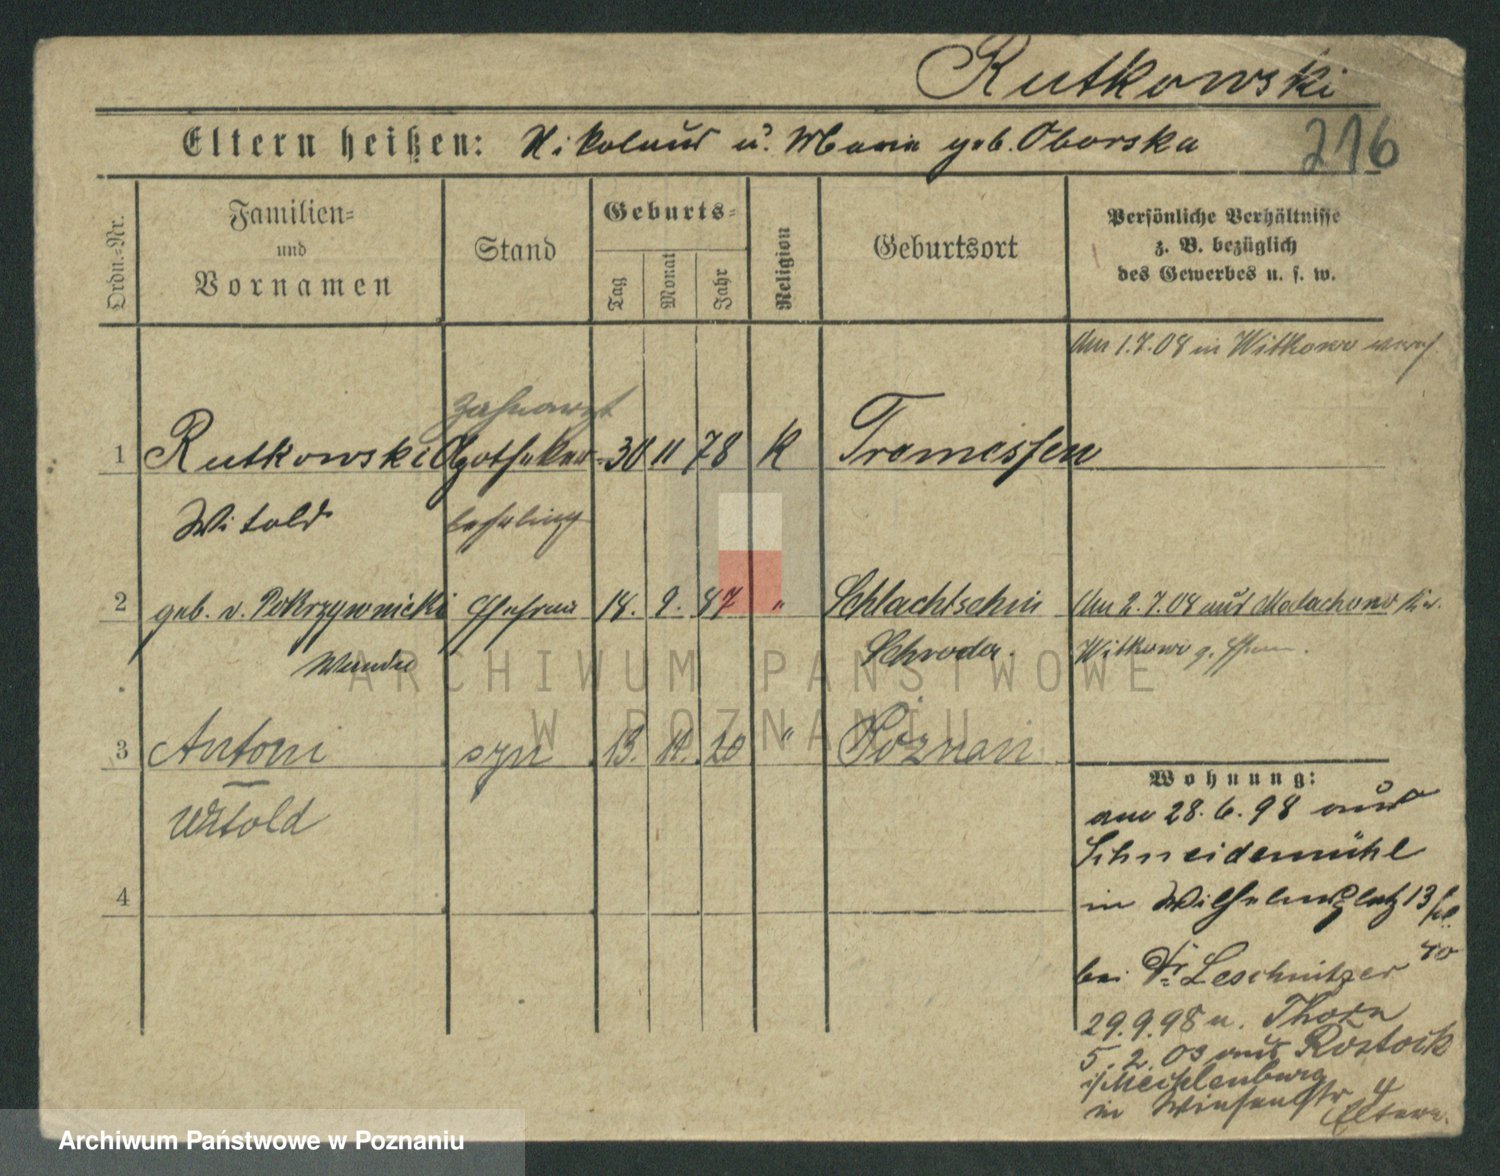 Rutkowski
Eltern heißen: Nikolaus u. Maria geb. Oborska
216
Ordn.=Nr.
Familien=
und
Vornamen
Stand
Geburts=
Tag
Monat
Jahr
Religion
Geburtsort
Persönliche Verhältnisse
z. B. bezüglich
des Gewerbes u. s. w.
Am 1.7.08 in Witkowo
Zahnarzt
1 Rutkowski Apotheker 30 11 78 K Tremessen
Witold lehrling
2 geb. v. Pokrzywnicki Ehefrau 18. 9. 87 " Schlachtschin Am 2.7.08 aus Malachowo Kr.
Wanda Schroda. Witkowo
3 Antoni syn 13. 11. 20 " Poznań
Witold
4
Wohnung:
am 28.6.98 aus
Schneidemühl
in Wilhelmsplatz 13
bei Dr Leschnitzer
29.9.98 n. Thorn
5.2.03 aus Rostock
i/Mecklenburg
in 4
Eltern.
ARCHIWUM PAŃSTWOWE
W POZNANIU
Archiwum Państwowe w Poznaniu